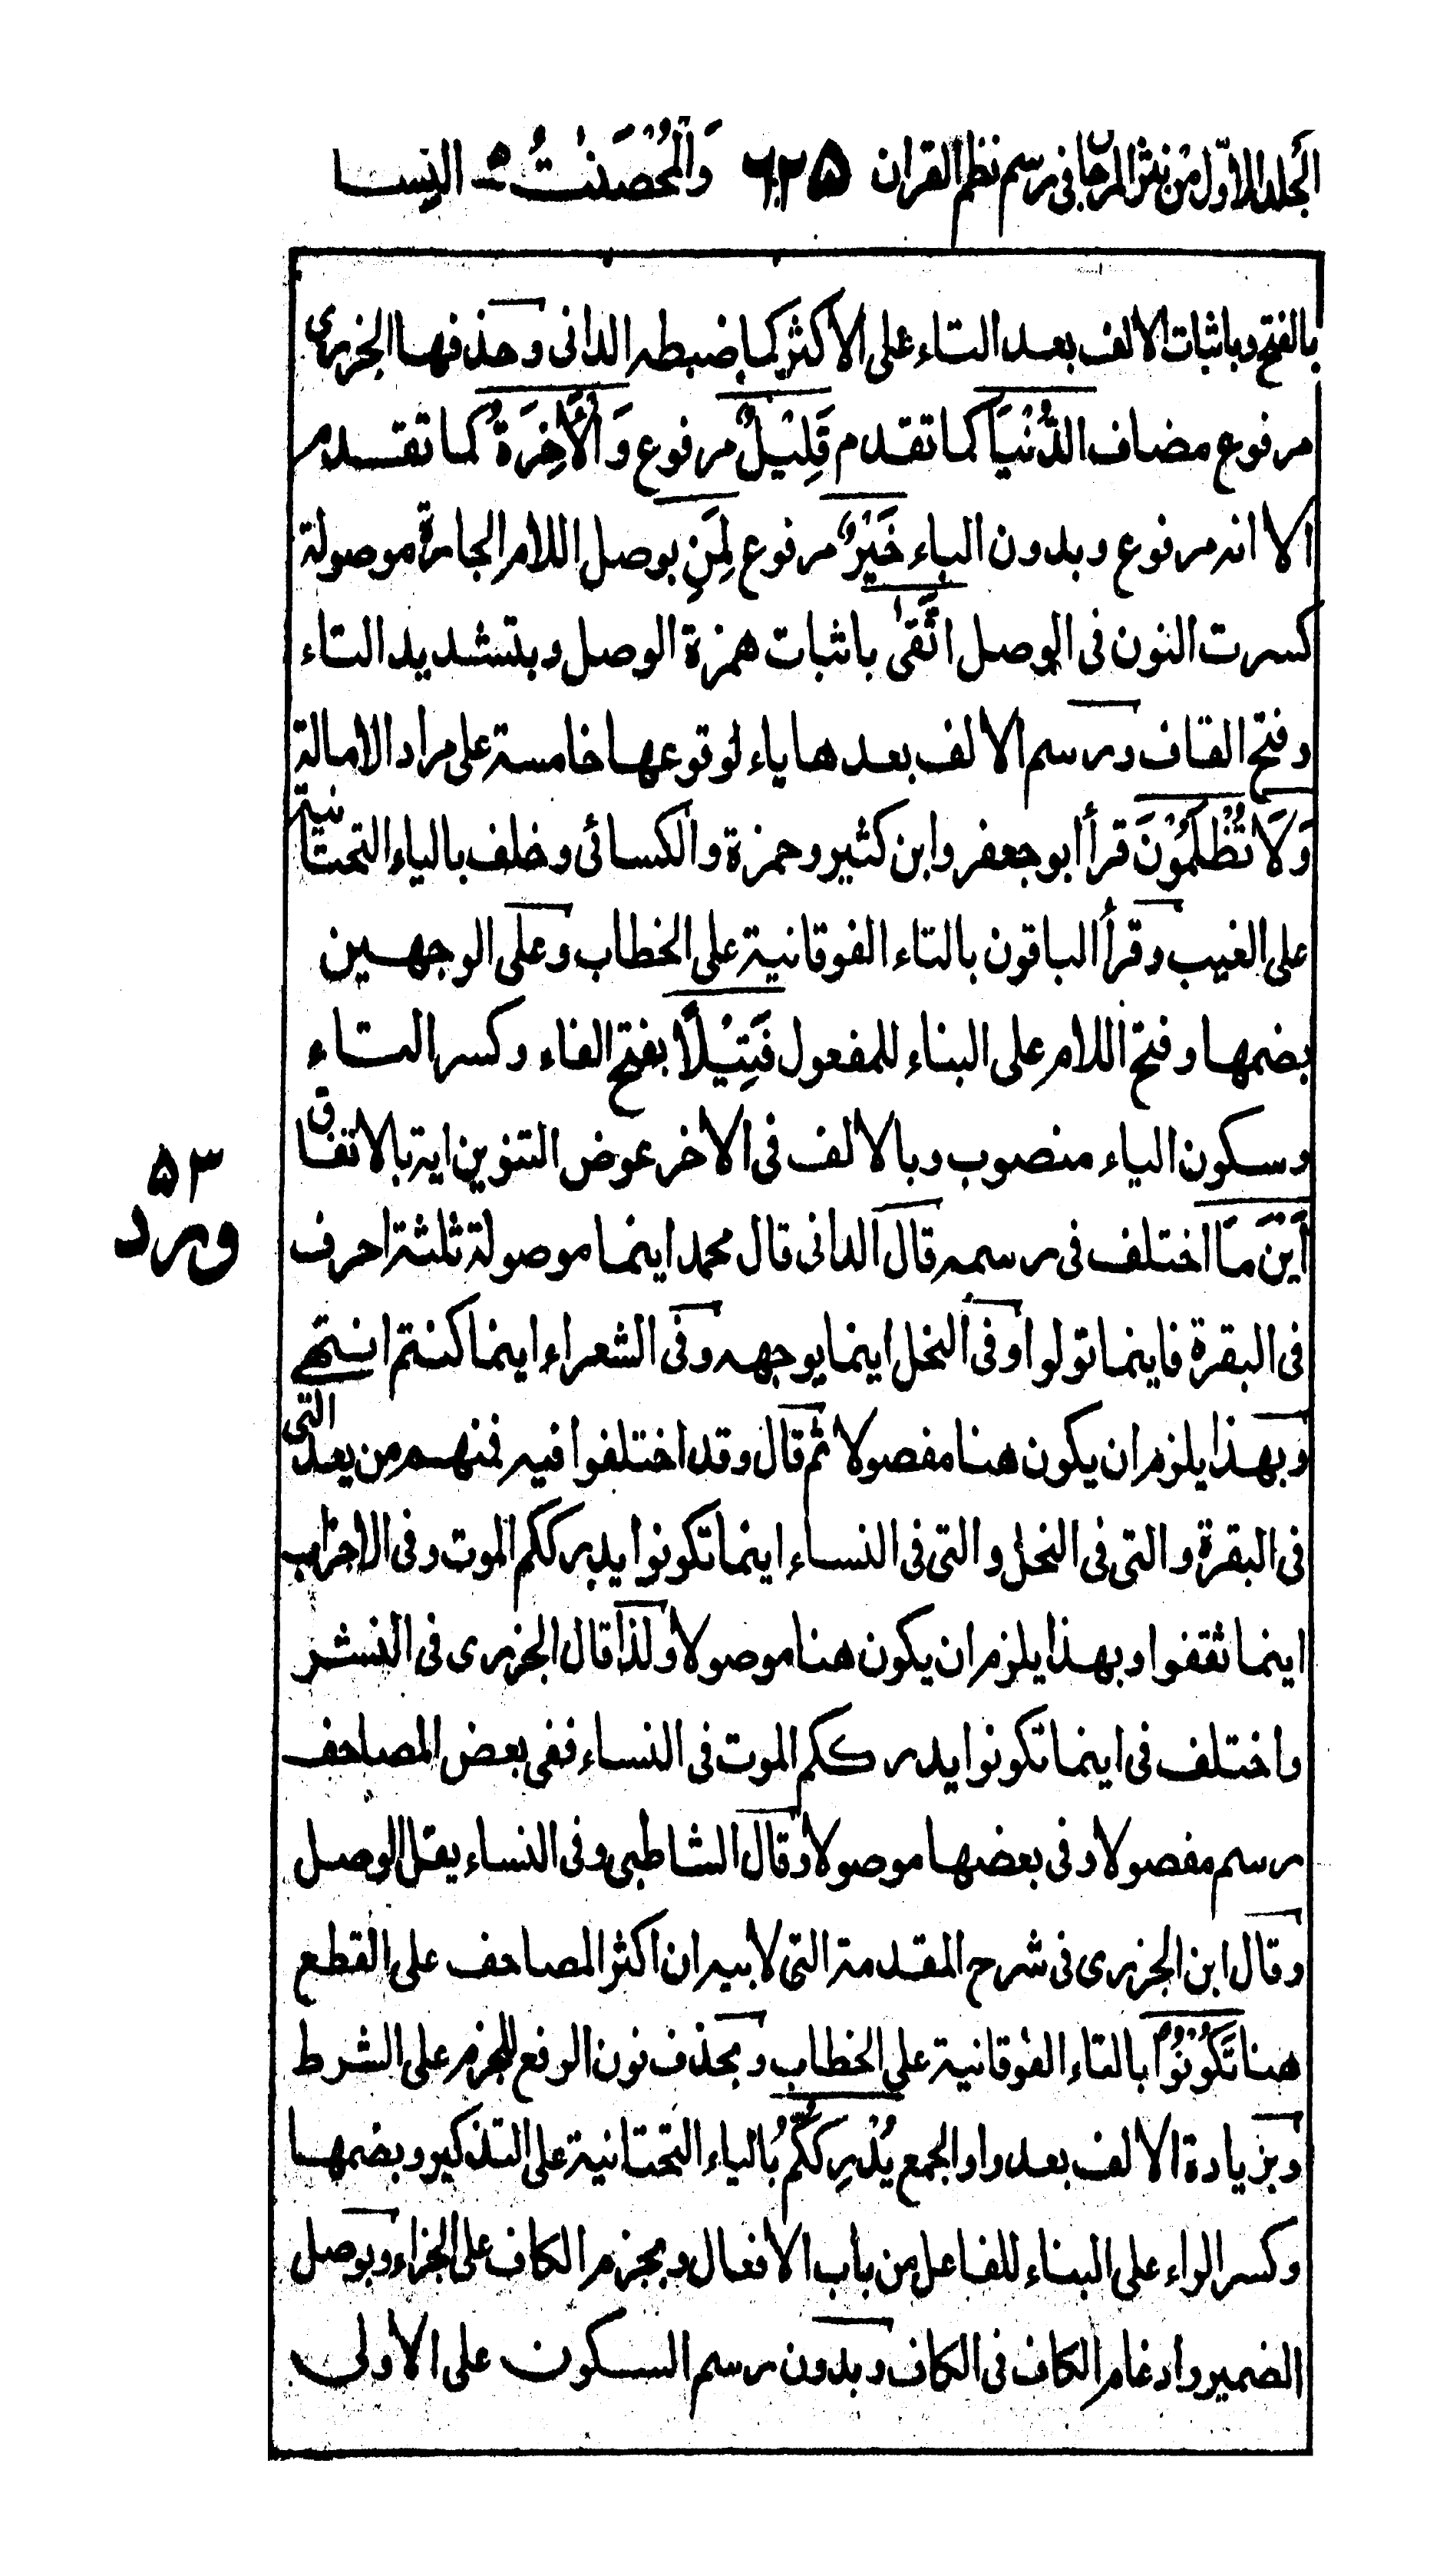 الجلد الاول من نثر المرجان في رسم نظم القران ٦٢٥ وَالْمُحْصَنٰتُ ٥ النسا
بالفتح وباثبات الالف بعد التاء على الاكثر كما ضبطه الداني وحذفها الجزري
مرفوع مضاف الدُّنْيَا كما تقدم قَلِيْلٌ مرفوع وَالْأٰخِرَةُ كما تقدم
الا انه مرفوع وبدون الباء خَيْرٌ مرفوع لِمَنِ بوصل اللام الجارة موصولة
كسرت النون في الوصل اتَّقٰى باثبات همزة الوصل وبتشديد التاء
وفتح القاف ورسم الالف بعدها ياء لوقوعها خامسة على مراد الامالة
وَلَا تُظْلَمُوْنَ قرأ ابو جعفر وابن كثير وحمزة والكسائي وخلف بالياء التحتانية
على الغيب وقرأ الباقون بالتاء الفوقانية على الخطاب وعلى الوجهين
بضمها وفتح اللام على البناء للمفعول فَتِيْلًا بفتح الفاء وكسر التاء
وسكون الياء منصوب وبالالف في الاخر عوض التنوين اية بالاتفاق
٥٣
ورد
أَيْنَ مَا اختلف في رسمه قال الداني قال محمد اينما موصولة ثلثة احرف
في البقرة فاينما تولوا وفي النحل اينما يوجهه وفي الشعراء اينما كنتم انتهى
وبهذا يلزم ان يكون هنا مفصولا ثم قال وقد اختلفوا فيه فمنهم من يعد التي
في البقرة والتي في النحل والتي في النساء اينما تكونوا يدرككم الموت وفي الاحزاب
اينما ثقفوا وبهذا يلزم ان يكون هنا موصولا ولذا قال الجزري في النشر
واختلف في اينما تكونوا يدرككم الموت في النساء ففي بعض المصاحف
رسم مفصولا وفي بعضها موصولا وقال الشاطبي وفي النساء يقل الوصل
وقال ابن الجزري في شرح المقدمة التي لابيه ان اكثر المصاحف على القطع
هنا تَكُوْنُوْا بالتاء الفوقانية على الخطاب وبحذف نون الرفع للجزم على الشرط
وبزيادة الالف بعد واو الجمع يُدْرِكْكُّمُ بالياء التحتانية على التذكير وبضمها
وكسر الراء على البناء للفاعل من باب الافعال وبجزم الكاف على الجزاء وبوصل
الضمير وادغام الكاف في الكاف وبدون رسم السكون على الاولى